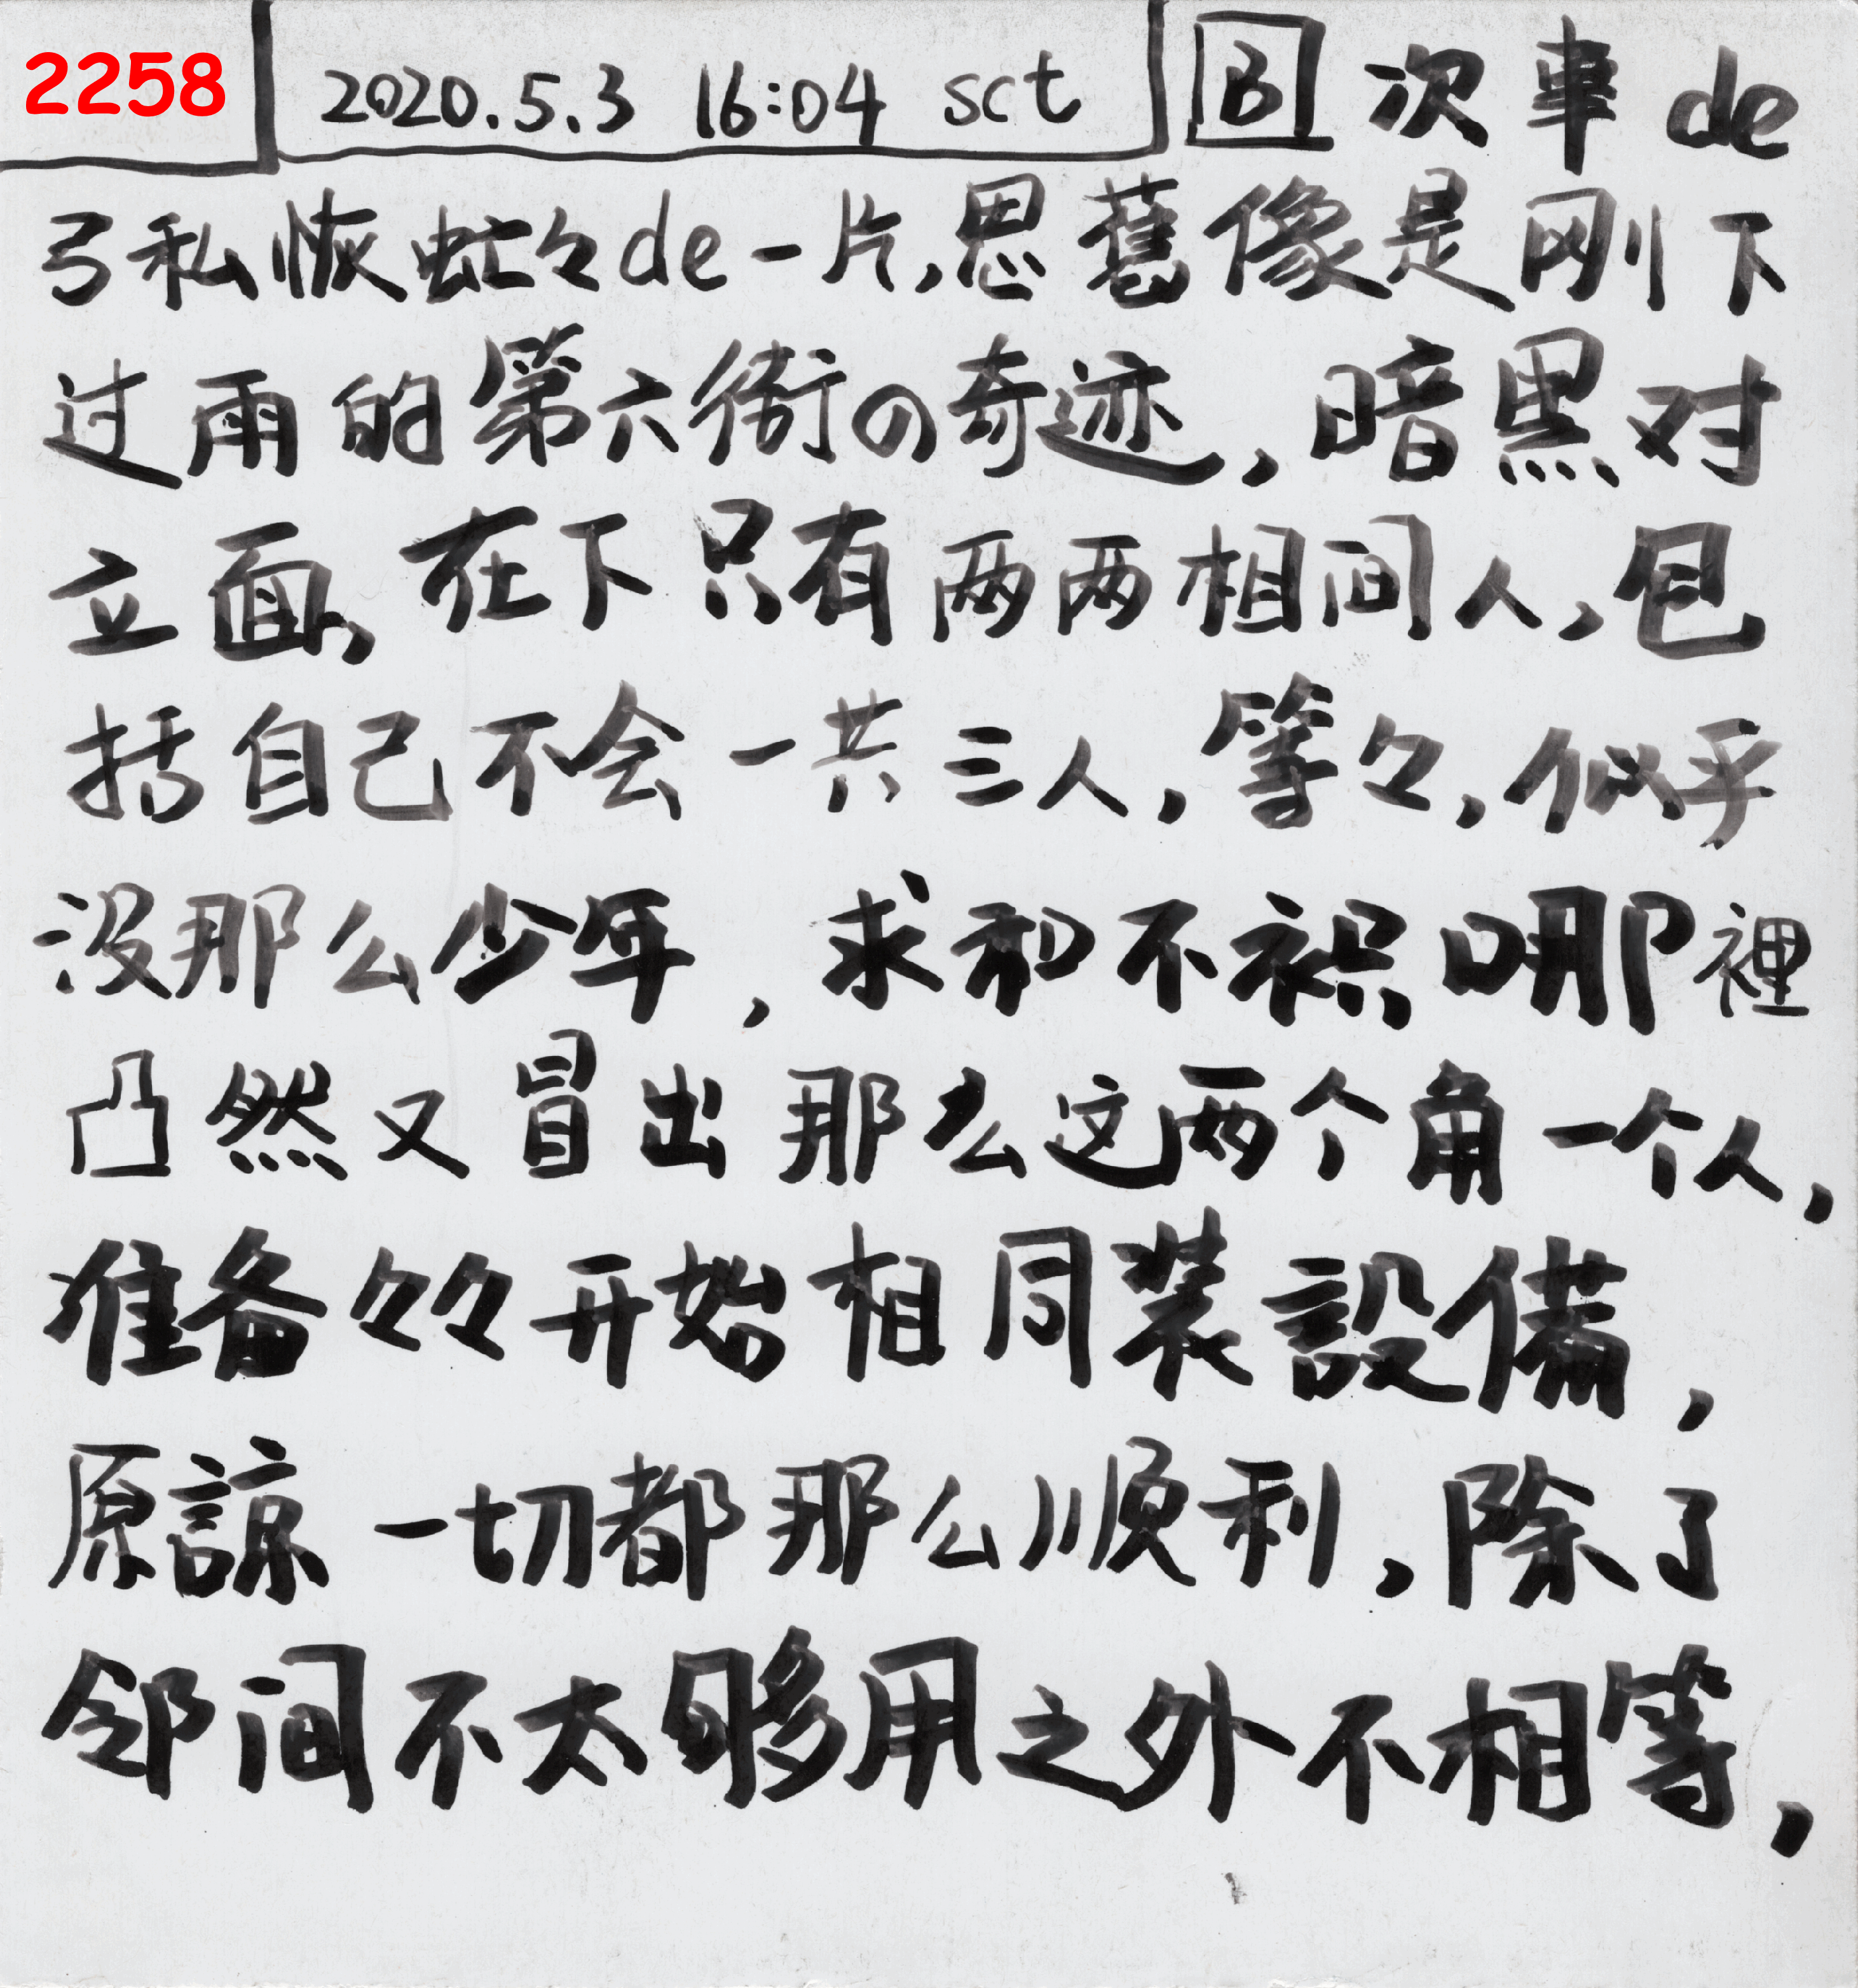 2258 2020.5.3 16:04 sct B 次事de
弓私恢虻々de一片,思舊像是刚下
过雨的第六衙の奇迹,暗黑对
立面,在下只有两两相间人,包
括自己不会一共三人,等々,似乎
没那么少年,求和不识哪裡
凸然又冒出那么这两个角一个人,
准备々々开始相同装設備,
原諒一切都那么顺利,除了
邻间不太够用之外不相等,